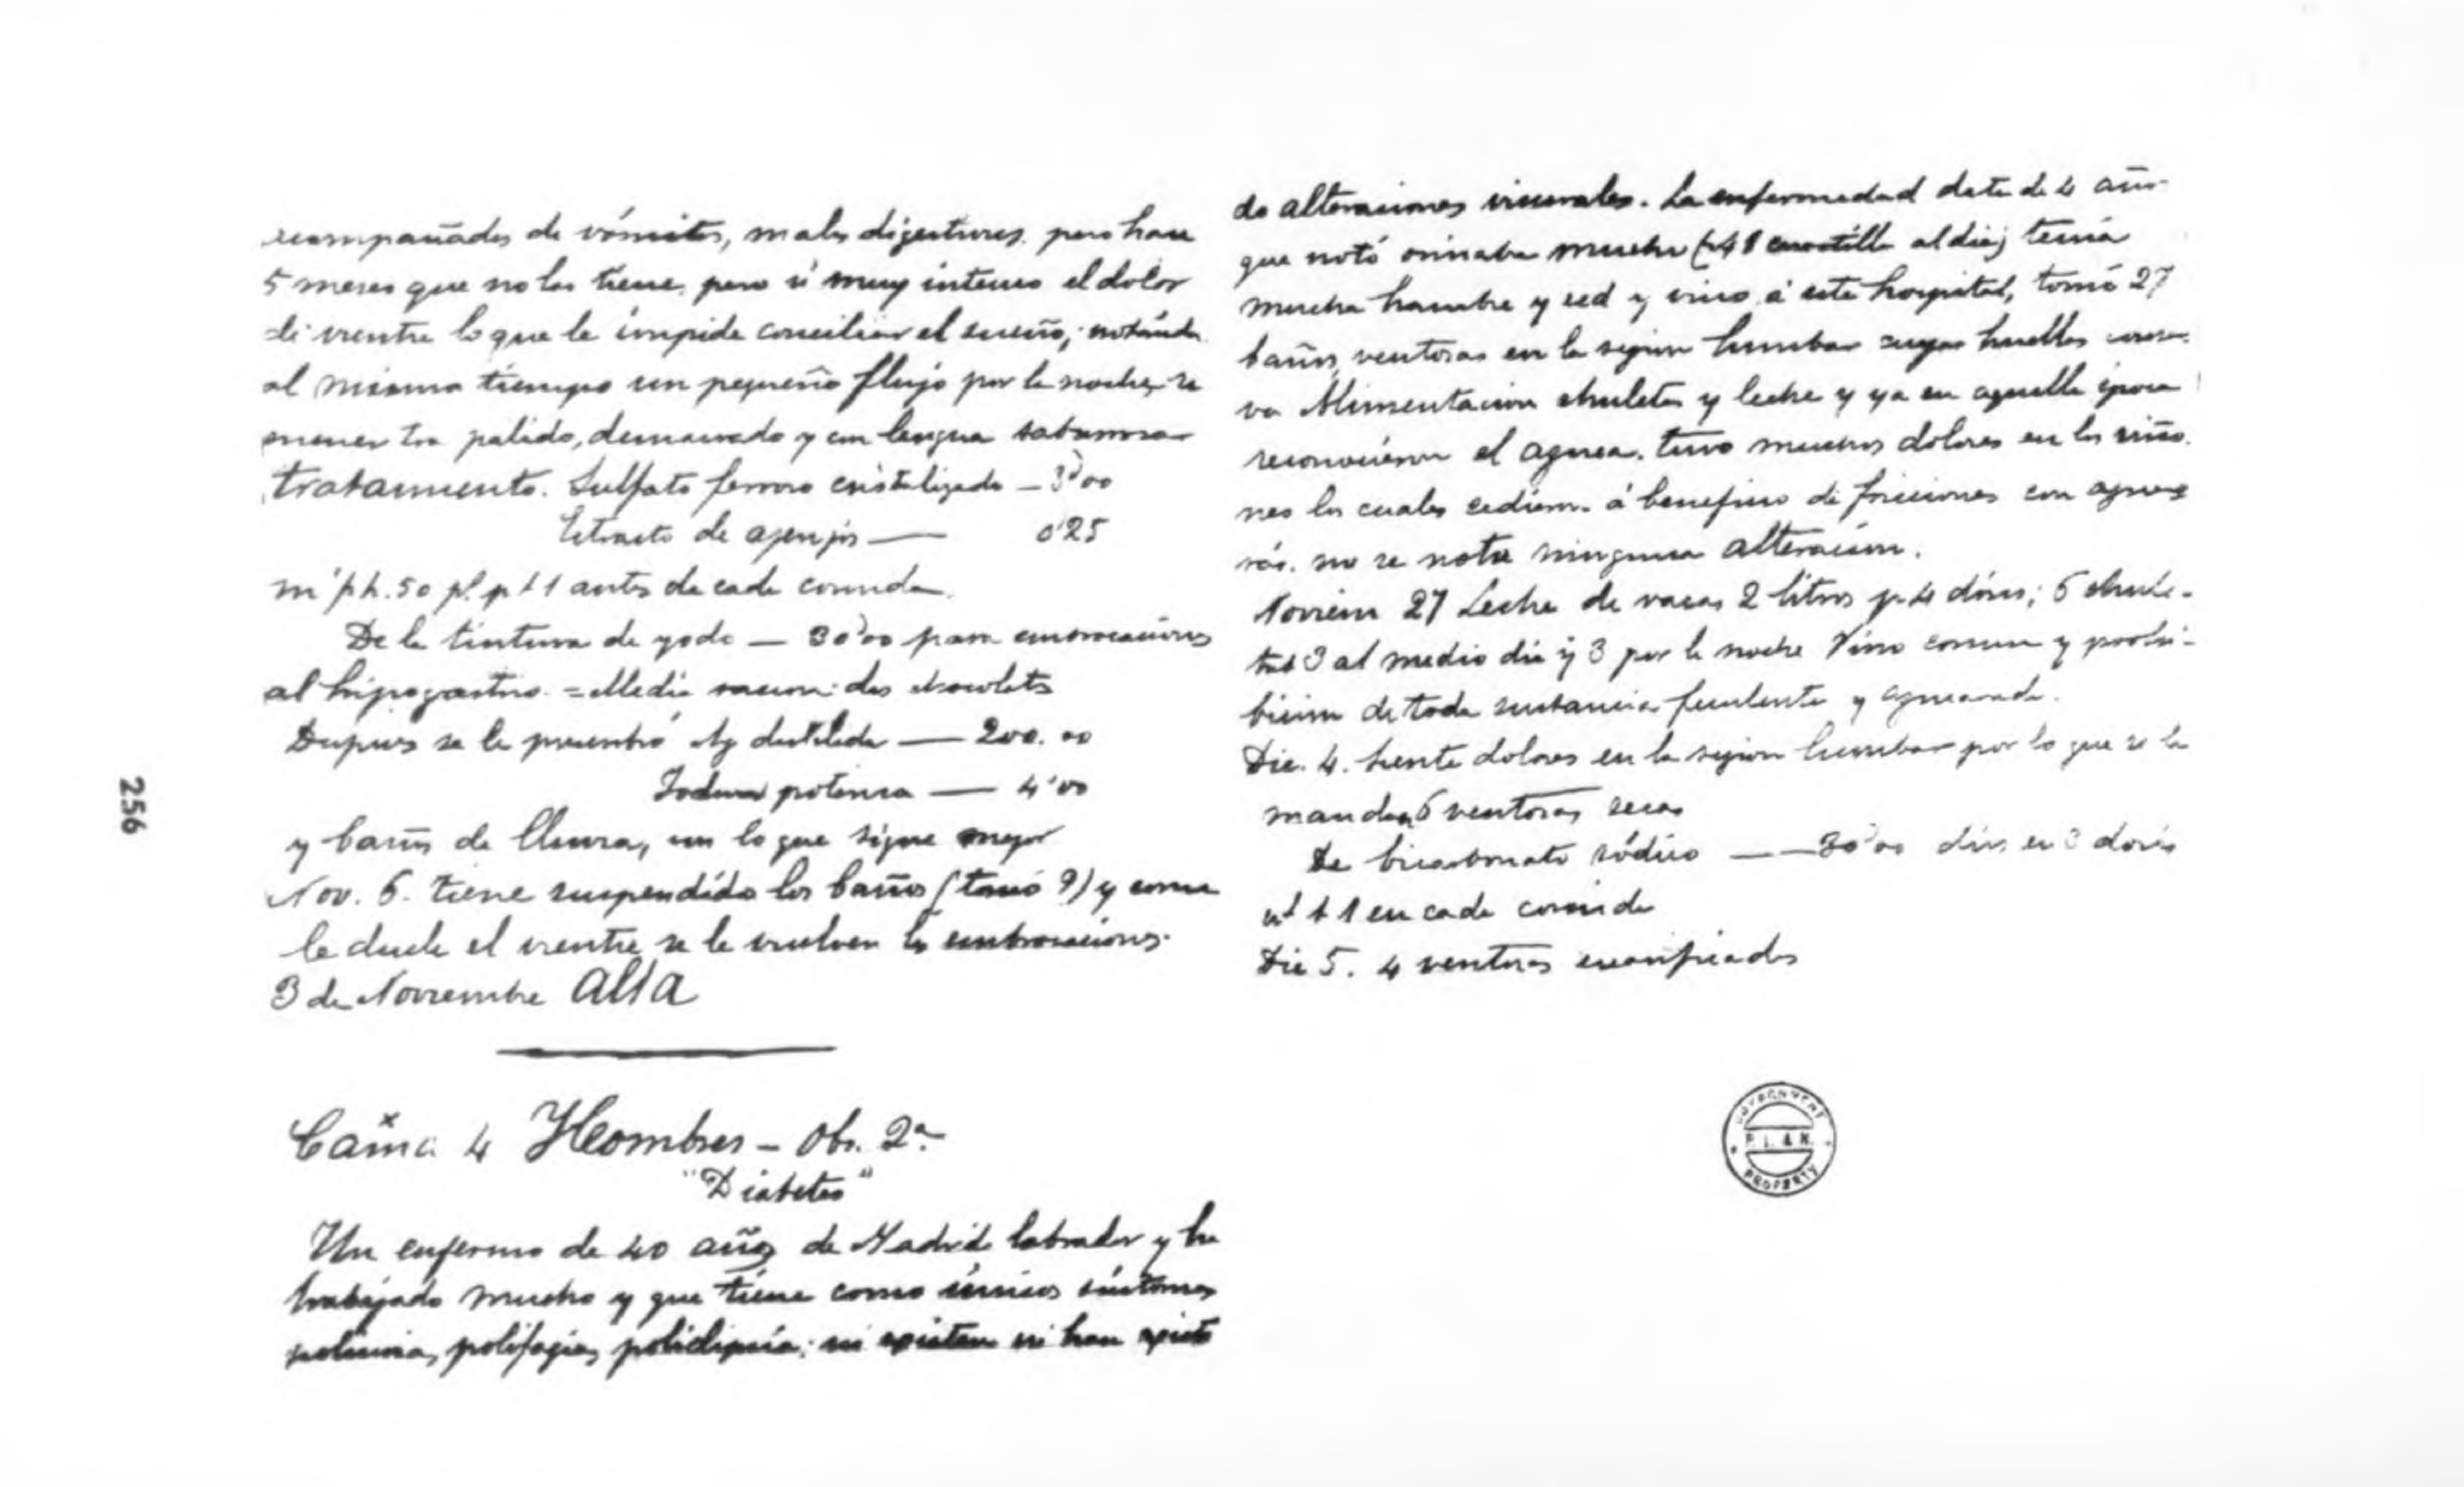 acompañados de vómitos, malas digestiones, pero hace
5 meses que no los tiene, pero si muy intenso el dolor
de vientre lo que le impide conciliar el sueño; notando
al mismo tiempo un pequeño flujo por la noche, se
encuentra palido, demacrado y con lengua saburrosa
tratamiento. Sulfato ferroso cristalizado — 3'00
Extracto de ajenjos — 0'25
m. p. h. 50 pl. p t 1 antes de cada comida.
De la tintura de yodo — 30'00 para embrocaciones
al hipogastrio. = Media racion: dos chocolates
Despues se le prescribió Ag destilada — 200.00
Ioduro potasico — 4'00
y baños de lluvia, con lo que sigue mejor
Nov. 6. tiene suspendido los baños (tomó 9) y como
le duele el vientre se le vuelven las embrocaciones.
3 de Noviembre Alta
Cama 4 Hombres – Obs. 2ª
"Diabetes"
Un enfermo de 40 años de Madrid labrador y ha
trabajado mucho y que tiene como únicos síntomas
poliuria, polifagia, polidipsia; ni existen ni han existi
do alteraciones viscerales. La enfermedad data de 4 años
que notó orinaba mucho (48 cuartillo al dia) tenia
mucha hambre y sed y vino á este hospital, tomó 27
baños, ventosas en la region lumbar cuyas huellas conser-
va Alimentacion chuletas y leche y ya en aquella época
reconocieron el azucar. Tuvo muchos dolores en los riño-
nes los cuales cedieron á beneficio de fricciones con
no se nota ninguna alteracion.
Noviem 27 Leche de vacas 2 litros p. 4 dósis; 6 chule-
tas 3 al medio dia y 3 por la noche Vino comun y prohi-
bicion de toda sustancia feculenta y azucarada.
Dic. 4. siente dolores en la region lumbar por lo que se la
mandan 6 ventosas secas
De bicarbonato sódico — 30'00 div. en 3 dosis
t 1 en cada comida
Dic 5. 4 ventosas escarificadas
256
GOVERNMENT
P. I. & N.
PROPERTY